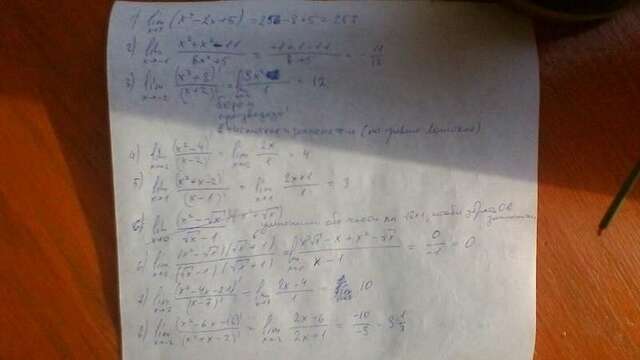 1) lim (x²-2x+5) = 256-8+5=253
2) lim x→-1 x³+x²-11 / 6x²+5 = -1+1-11 / 6+5 = -11/11
3) lim x→-2 (x³+8)' / (x+2)' = 3x² / 1 = 12
берем
производную
в числителе и знаменателе (по правилу Лопиталя)
4) lim x→2 (x²-4)' / (x-2)' = lim x→2 2x / 1 = 4
5) lim x→1 (x²+x-2)' / (x-1)' = lim x→1 2x+1 / 1 = 3
6) lim x→0 (x²-√x) / √x-1
6) lim x→0 (x²-√x)(√x+1) / (√x-1)(√x+1) = lim x→0 x²√x-x+x²-√x / x-1 = 0 / -1 = 0
7) lim x→7 (x²-4x-21)' / (x-7)' = lim x→7 2x-4 / 1 = 10
8) lim x→-2 (x²-6x-16)' / (x²+x-2)' = lim x→-2 2x-6 / 2x+1 = -10 / -3 = 3 1/3